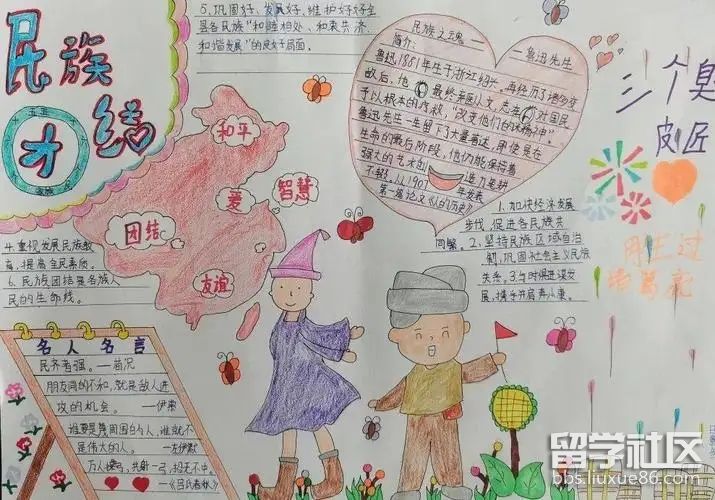 民族
团结
5、巩固好、发展好、维护好好全
县各民族“和睦相处、和衷共济、
和谐发展”的良好局面。
民族之魂
简介:
鲁迅先生
鲁迅1881年生于浙江绍兴。再经历了诸多变
故后，他
最终弃医从文，志在
对国民
予以根本的疗救，“改变他们的
精神”。
鲁迅先生一生留下了大量著述，即使是在
生命的最后阶段，他仍能保持着
强大的艺术创
造力笔耕
不辍。从1907
年发表
第一篇论文《人的历史》
三个臭
皮匠
和平
爱
智慧
团结
友谊
1、加快经济发展
步伐，促进各民族共
同繁。2、坚持民族区域自治
制，巩固社会主义民族
关系。3、与时俱进谋发
展，携手开启
4、重视发展民族教
育，提高全民素质。
6、民族团结是各族人
民的生命线。
名人名言
民齐者强。——荀况
朋友间的不和，就是敌人进
攻的机会。——伊索
谁要是蔑周围的人，谁就不
是伟大的人。——左伊默
万人操弓，共射一
，招无不中。
——《吕氏春秋》
留学社区
bbs.liuxue86.com